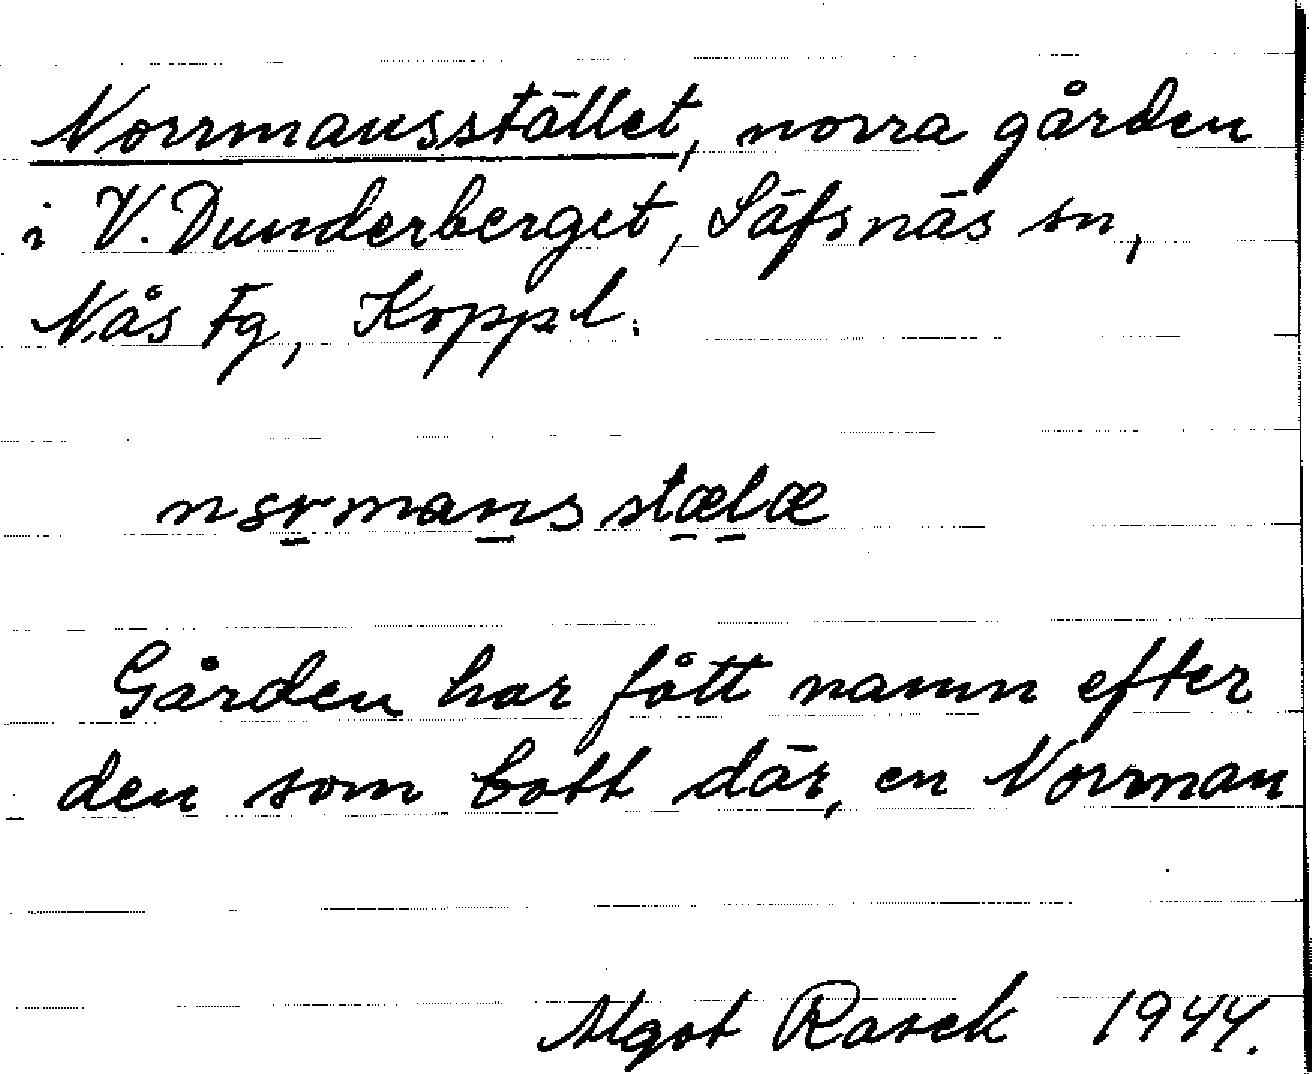 Norrmansstället, norra gården
i V. Dunderberget, Säfsnäs sn,
Nås tg, Koppl.
Gården har fått namn efter
den som bott där, en Norrman
Algot Rasck 1944.